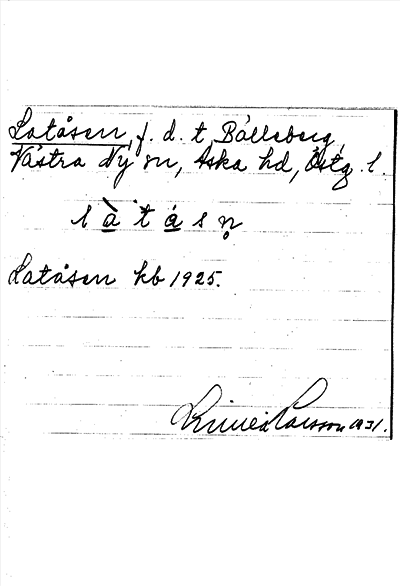 Latåsen, f. d. t. Bålleberg,
Västra Ny sn, Aska hd, Östg. l.
làtásn̥
Latåsen hb 1925.
Linnéa Larsson 1931.